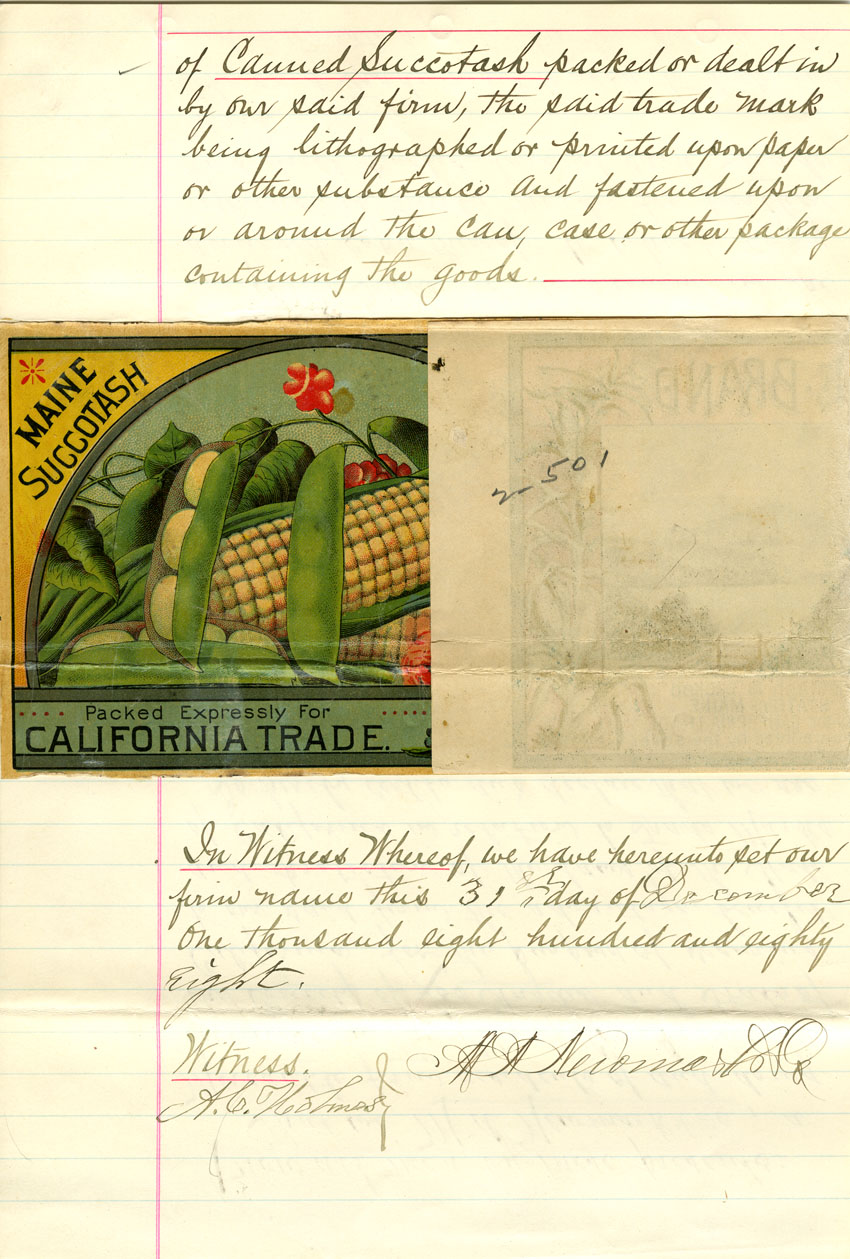 of Canned Succotash packed or dealt in
by our said firm, the said trade mark
being lithographed or printed upon paper
or other substance and fastened upon
or around the can, case or other package
containing the goods.
MAINE
SUCCOTASH
BRAND
501
Packed Expressly For
CALIFORNIA TRADE.
In Witness Whereof, we have hereunto set our
firm name this 31st day of December
One thousand eight hundred and eighty
Eight.
Witness.
A. C. Holmes